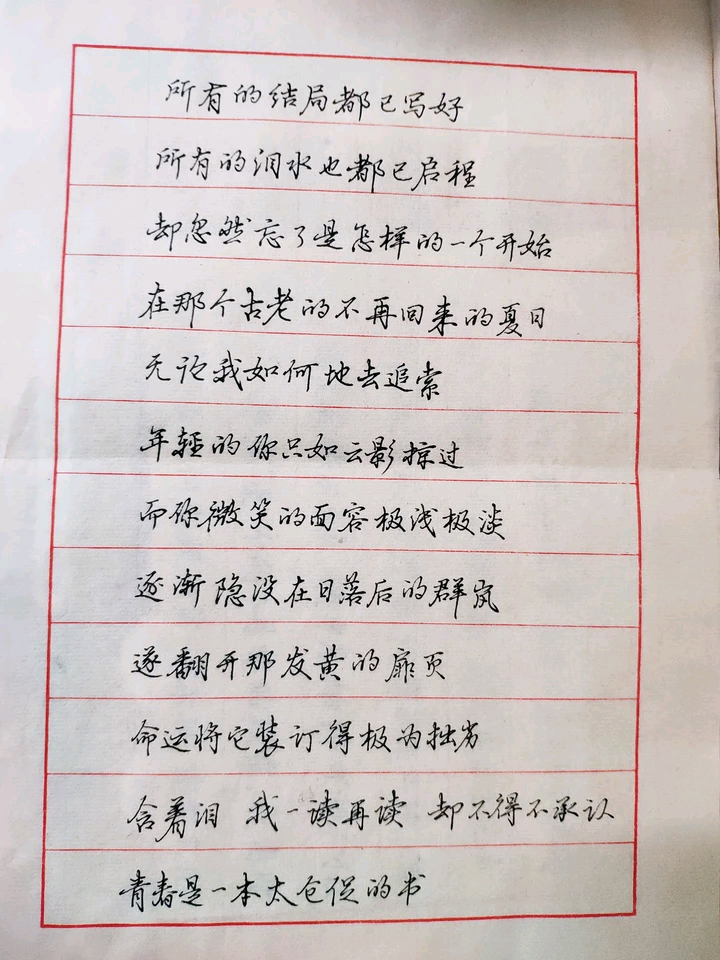 所有的结局都已写好
所有的泪水也都已启程
却忽然忘了是怎样的一个开始
在那个古老的不再回来的夏日
无论我如何地去追索
年轻的你只如云影掠过
而你微笑的面容极浅极淡
逐渐隐没在日落后的群岚
遂翻开那发黄的扉页
命运将它装订得极为拙劣
含着泪 我一读再读 却不得不承认
青春是一本太仓促的书